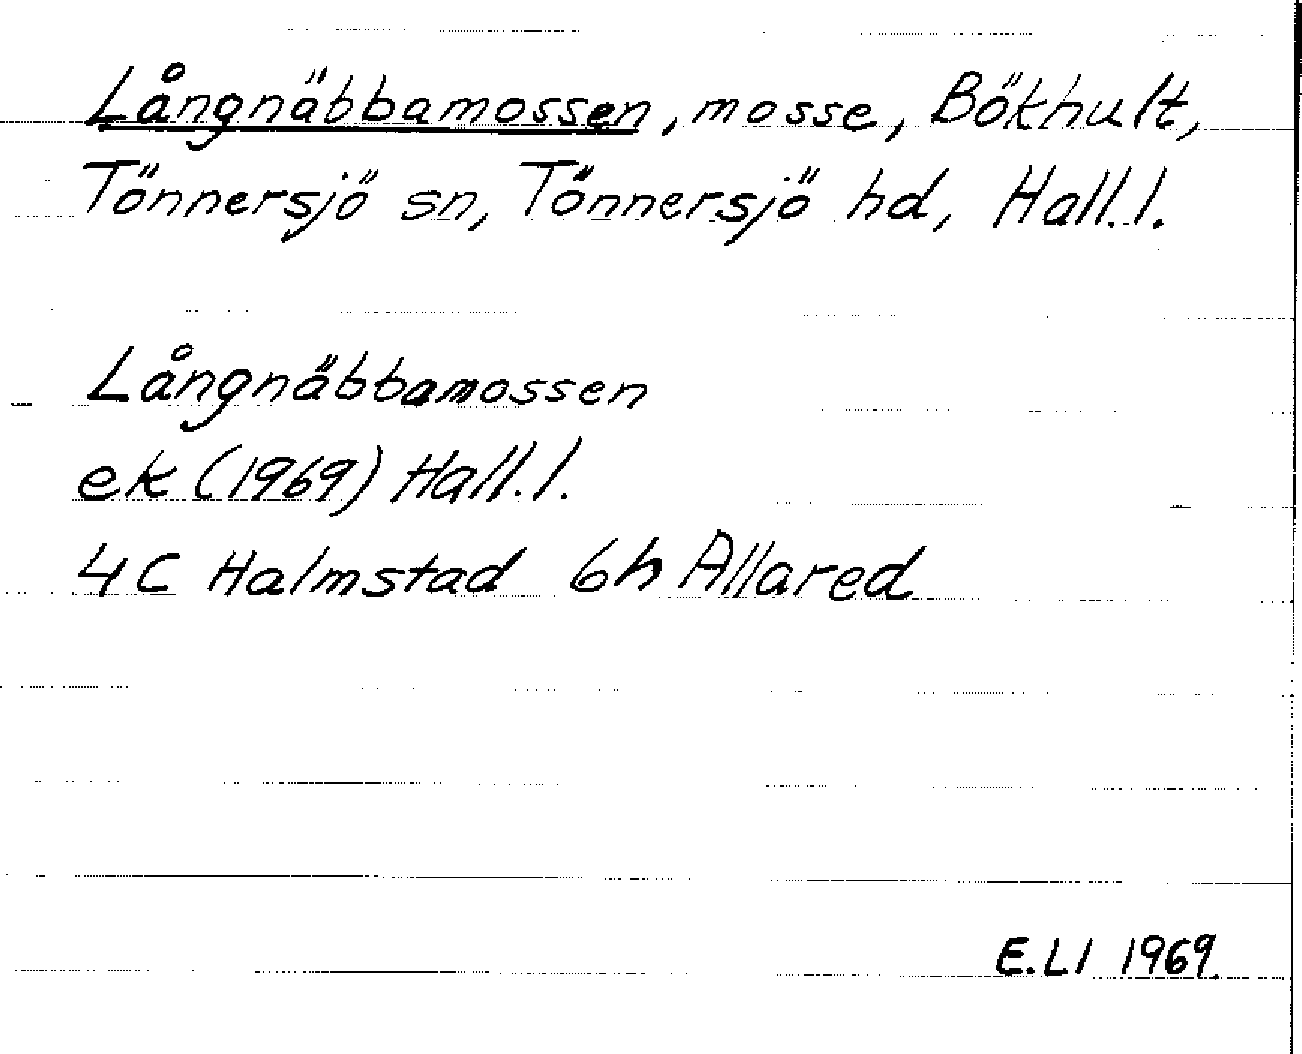 Långnäbbamossen, mosse, Bökhult,
Tönnersjö sn, Tönnersjö hd, Hall.l.
Långnäbbamossen
ek (1969) Hall.l.
4C Halmstad 6h Allared
E.Ll 1969.